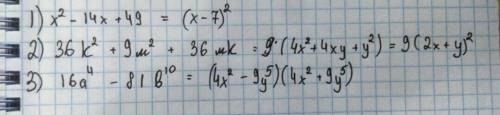 1) x² - 14x + 49 = (x - 7)²
2) 36k² + 9м² + 36мк = 9·(4x² + 4xy + y²) = 9(2x + y)²
3) 16a⁴ - 81b¹⁰ = (4x² - 9y⁵)(4x² + 9y⁵)